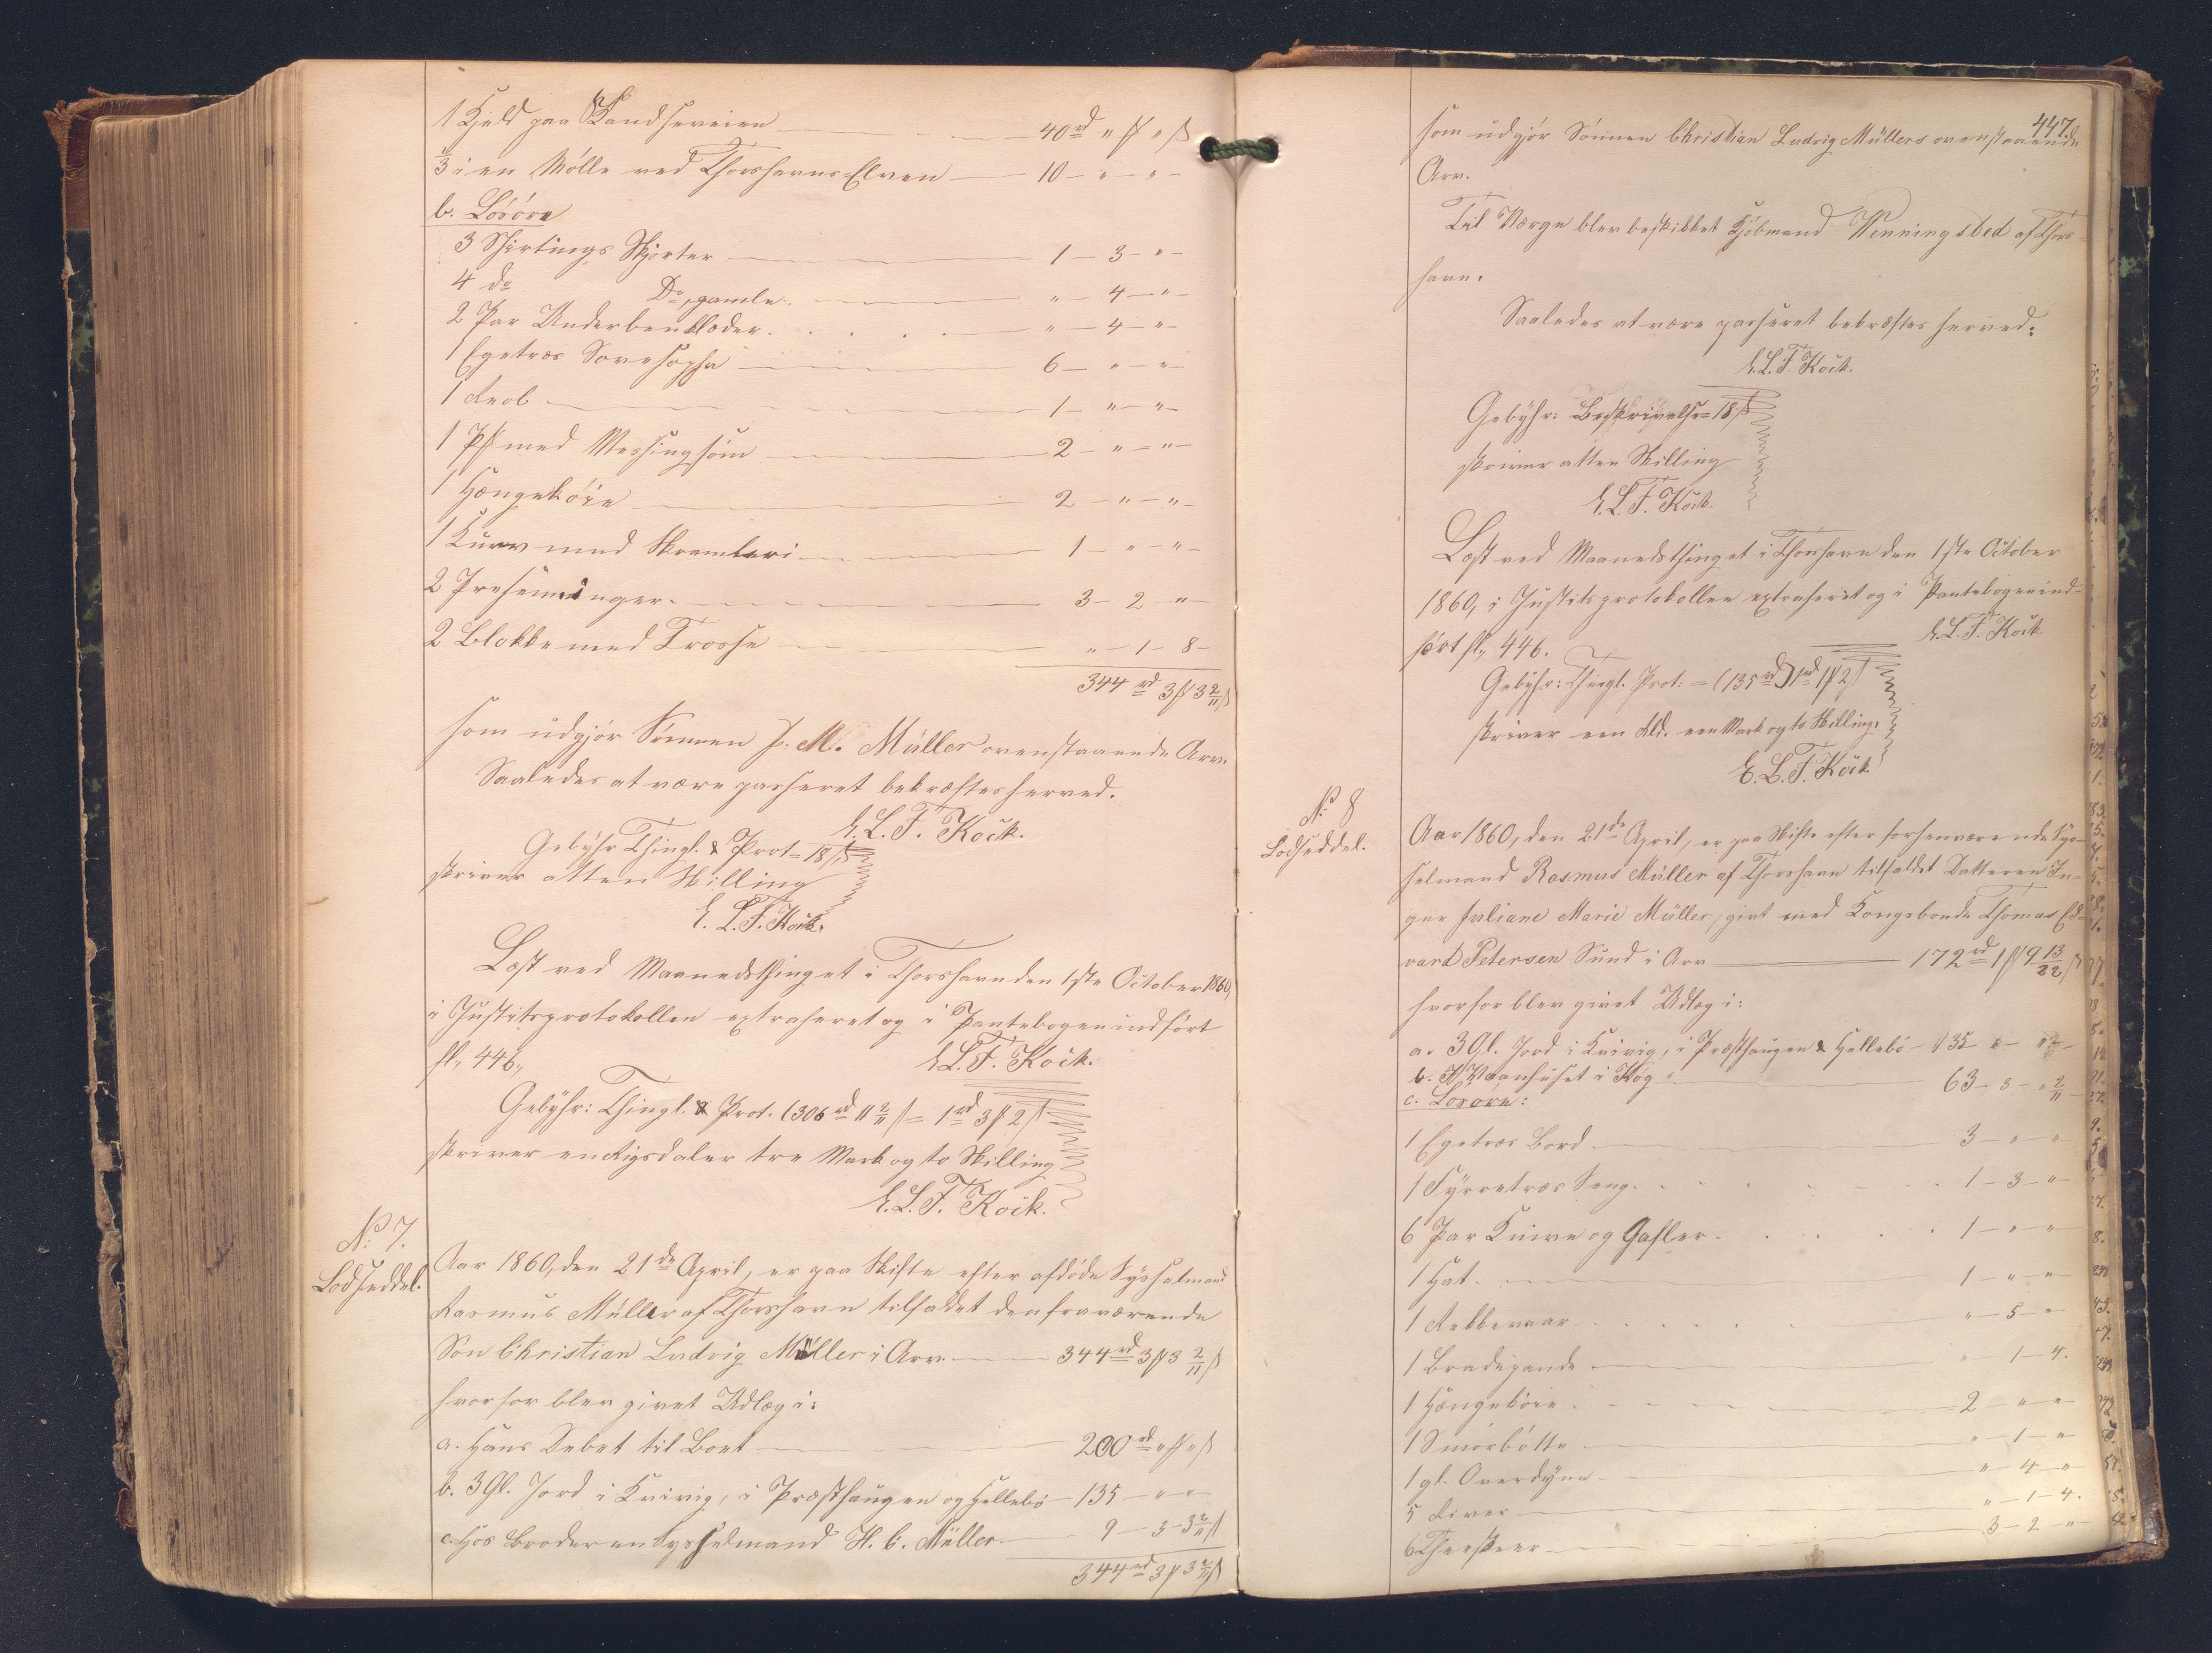 1 Hjeld paa Sandsereien — 40 rd " ß " ß
1/3 i en Mølle ved Thorshavns Elven — 10 - " - " -
b. Løsøre
3 Shirtings Skjorter — 1 - 3 - " -
4 do Do, gamle. — " - 4 - " -
2 Par Underbenklæder. — " - 4 - " -
1 Egetræs Sovesopha — 6 - " - " -
1 Reol — 1 - " - " -
1 Pf med Messingsøm — 2 - " - " -
1 Hængekøie — 2 - " - " -
1 Kurv med Skramleri — 1 - " - " -
2 Preseninger. — 3 - 2 - " -
2 Blokke med Trosse — " - 1 - 8 -
344 rd 3 ß 3 2/11 ß
som udgjør Sønnen J. M. Müllers ovenstaaende Arv.
Saaledes at være passeret bekræftes herved.
E. L. F. Kock.
Gebyhr Thingl. & Prot = 18 ß
skriver atten Skilling
E. L. F. Kock.
Læst ved Maanedsthinget i Thorshavn den 1ste October 1860,
i Justitsprotokollen extraheret og i Pantebogen indført
fl. 446.
E. L. F. Kock.
Gebyhr: Thingl. & Prot. (306 rd 11 2/11 ß = 1 rd 3 ß 2 ß
skriver en Rigsdaler tre Mark og to Skilling
E. L. F. Kock.
No. 7.
Lodseddel.
Aar 1860, den 21de April, er paa Skifte efter afdøde Sysselmand
Rasmus Müller af Thorshavn tilfaldet den fraværende
Søn Christian Ludvig Müller i Arv. — 344 rd 3 ß 3 2/11 ß
hvorfor blev givet Udlæg i:
a. Hans Debet til Boet — 200 rd " ß " ß
b. 3 Gl. Jord i Kvivig, i Præsthaugen og Hellebø — 135 - " - "
c. Hos Broderen Sysselmand H. C. Müller — 9 - 3 - 3 2/11 ß
344 rd 3 ß 3 2/11 ß
447.
som udgjør Sønnen Christian Ludvig Müllers ovenstaaende
Arv.
Til Værge blev beskikket Kjøbmand Wenningsted af Thors-
havn.
Saaledes at være passeret bekræftes herved.
E. L. F. Kock.
Gebyhr: Beskrivelse = 18 ß
skriver atten Skilling
E. L. F. Kock.
Læst ved Maanedsthinget i Thorshavn den 1ste October
1860, i Justitsprotokollen extraheret og i Pantebogen ind-
ført fl. 446.
E. L. F. Kock
Gebyhr: Thingl. Prot. = (135 rd) 1 rd 1 ß 2 ß
skriver een Rd. een Mark og to Skilling.
E. L. F. Kock
No. 8
Lodseddel.
Aar 1860, den 21de April, er paa Skifte efter forhenværende Sys-
selmand Rasmus Müller af Thorshavn tilfaldet Datteren In-
ger Juliane Marie Müller, givt med Kongsbonde Thomas Ed-
vard Petersen Sund i Arv — 172 rd 1 ß 9 13/22 ß
hvorfor blev givet Udlæg i:
a. 3 Gl. Jord i Kvivig, i Præsthaugen & Hellebø — 135 - " - "
b. i Hág — 63 - 3 - " 2/11
c. Løsøre:
1 Egetræs Bord — 3 - " - "
1 Fyrretræs Seng. — 1 - 3 - " -
6 Par Knive og Gafler. — 1 - " - "
1 Hat. — 1 - " - "
1 Rekkevaar — " - 5 - "
1 Bradepande — " - 1 - 4.
1 Hængekøie. — 2 - " - "
1 Smørbøtte — " - 1 - "
1 gl. Overdyne — " - 4 - "
5 River — " - 1 - 4.
6 Theskeer — 3 - 2 - "